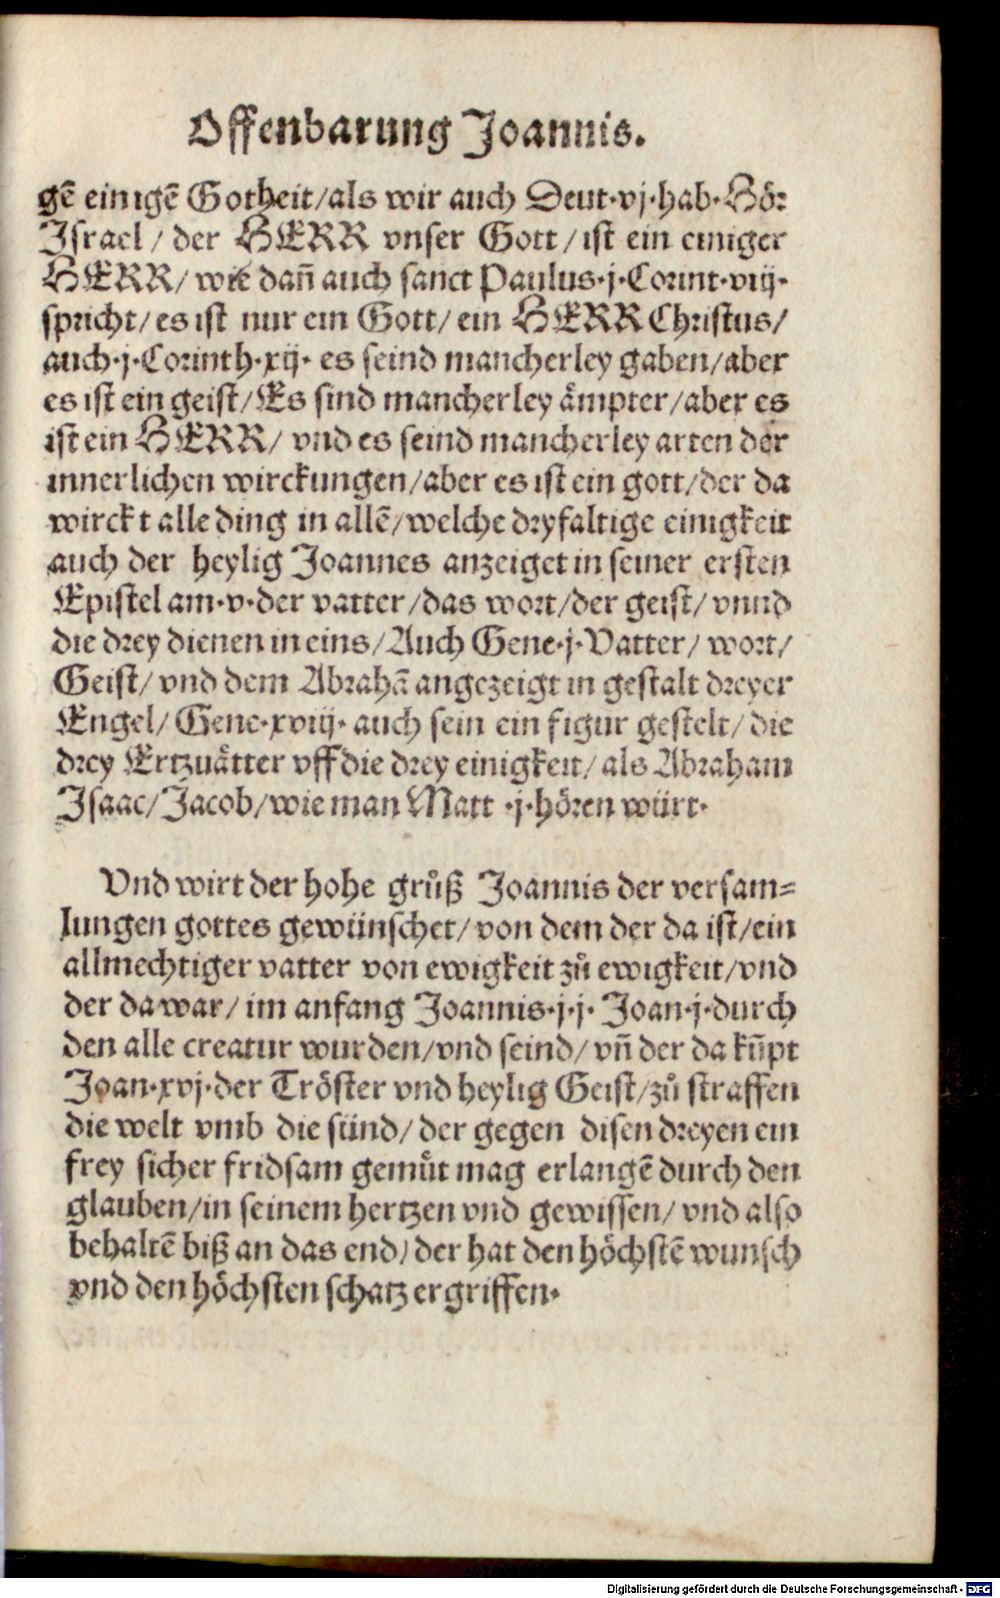 Offenbarung Joannis.
gē einigē Gotheit/als wir auch Deut·vj·hab·Hör
Israel / der HERR vnser Gott / ist ein einiger
HERR/ wie dañ auch sanct Paulus·j·Corint·viij·
spricht/ es ist nur ein Gott/ ein HERR Christus/
auch·j·Corinth·xij· es seind mancherley gaben/aber
es ist ein geist/Es sind mancherley aͤmpter/aber es
ist ein HERR/ vnd es seind mancherley arten der
innerlichen wirckungen/aber es ist ein gott/der da
wirckt alle ding in allē/welche dryfaltige einigkeit
auch der heylig Joannes anzeiget in seiner ersten
Epistel am·v·der vatter/das wort/der geist/ vnnd
die drey dienen in eins/Auch Gene·j·Vatter/ wort/
Geist/ vnd dem Abrahā angezeigt in gestalt dreyer
Engel/ Gene·xviij· auch sein ein figur gestelt/ die
drey Ertzuaͤtter vff die drey einigkeit/ als Abraham
Isaac/Jacob/wie man Matt ·j·hoͤren wuͤrt·
Vnd wirt der hohe gruͦß Joannis der versam=
lungen gottes gewünschet/ von dem der da ist/ein
allmechtiger vatter von ewigkeit zuͦ ewigkeit/vnd
der da war/ im anfang Joannis·j·j· Joan·j·durch
den alle creatur wurden/vnd seind/ vñ der da kūpt
Joan·xvj·der Troͤster vnd heylig Geist/zuͦ straffen
die welt vmb die sünd/ der gegen disen dreyen ein
frey sicher fridsam gemuͤt mag erlangē durch den
glauben/in seinem hertzen vnd gewissen/ vnd also
behaltē biß an das end/der hat den hoͤchstē wunsch
vnd den hoͤchsten schatz ergriffen·
Digitalisierung gefördert durch die Deutsche Forschungsgemeinschaft - DFG